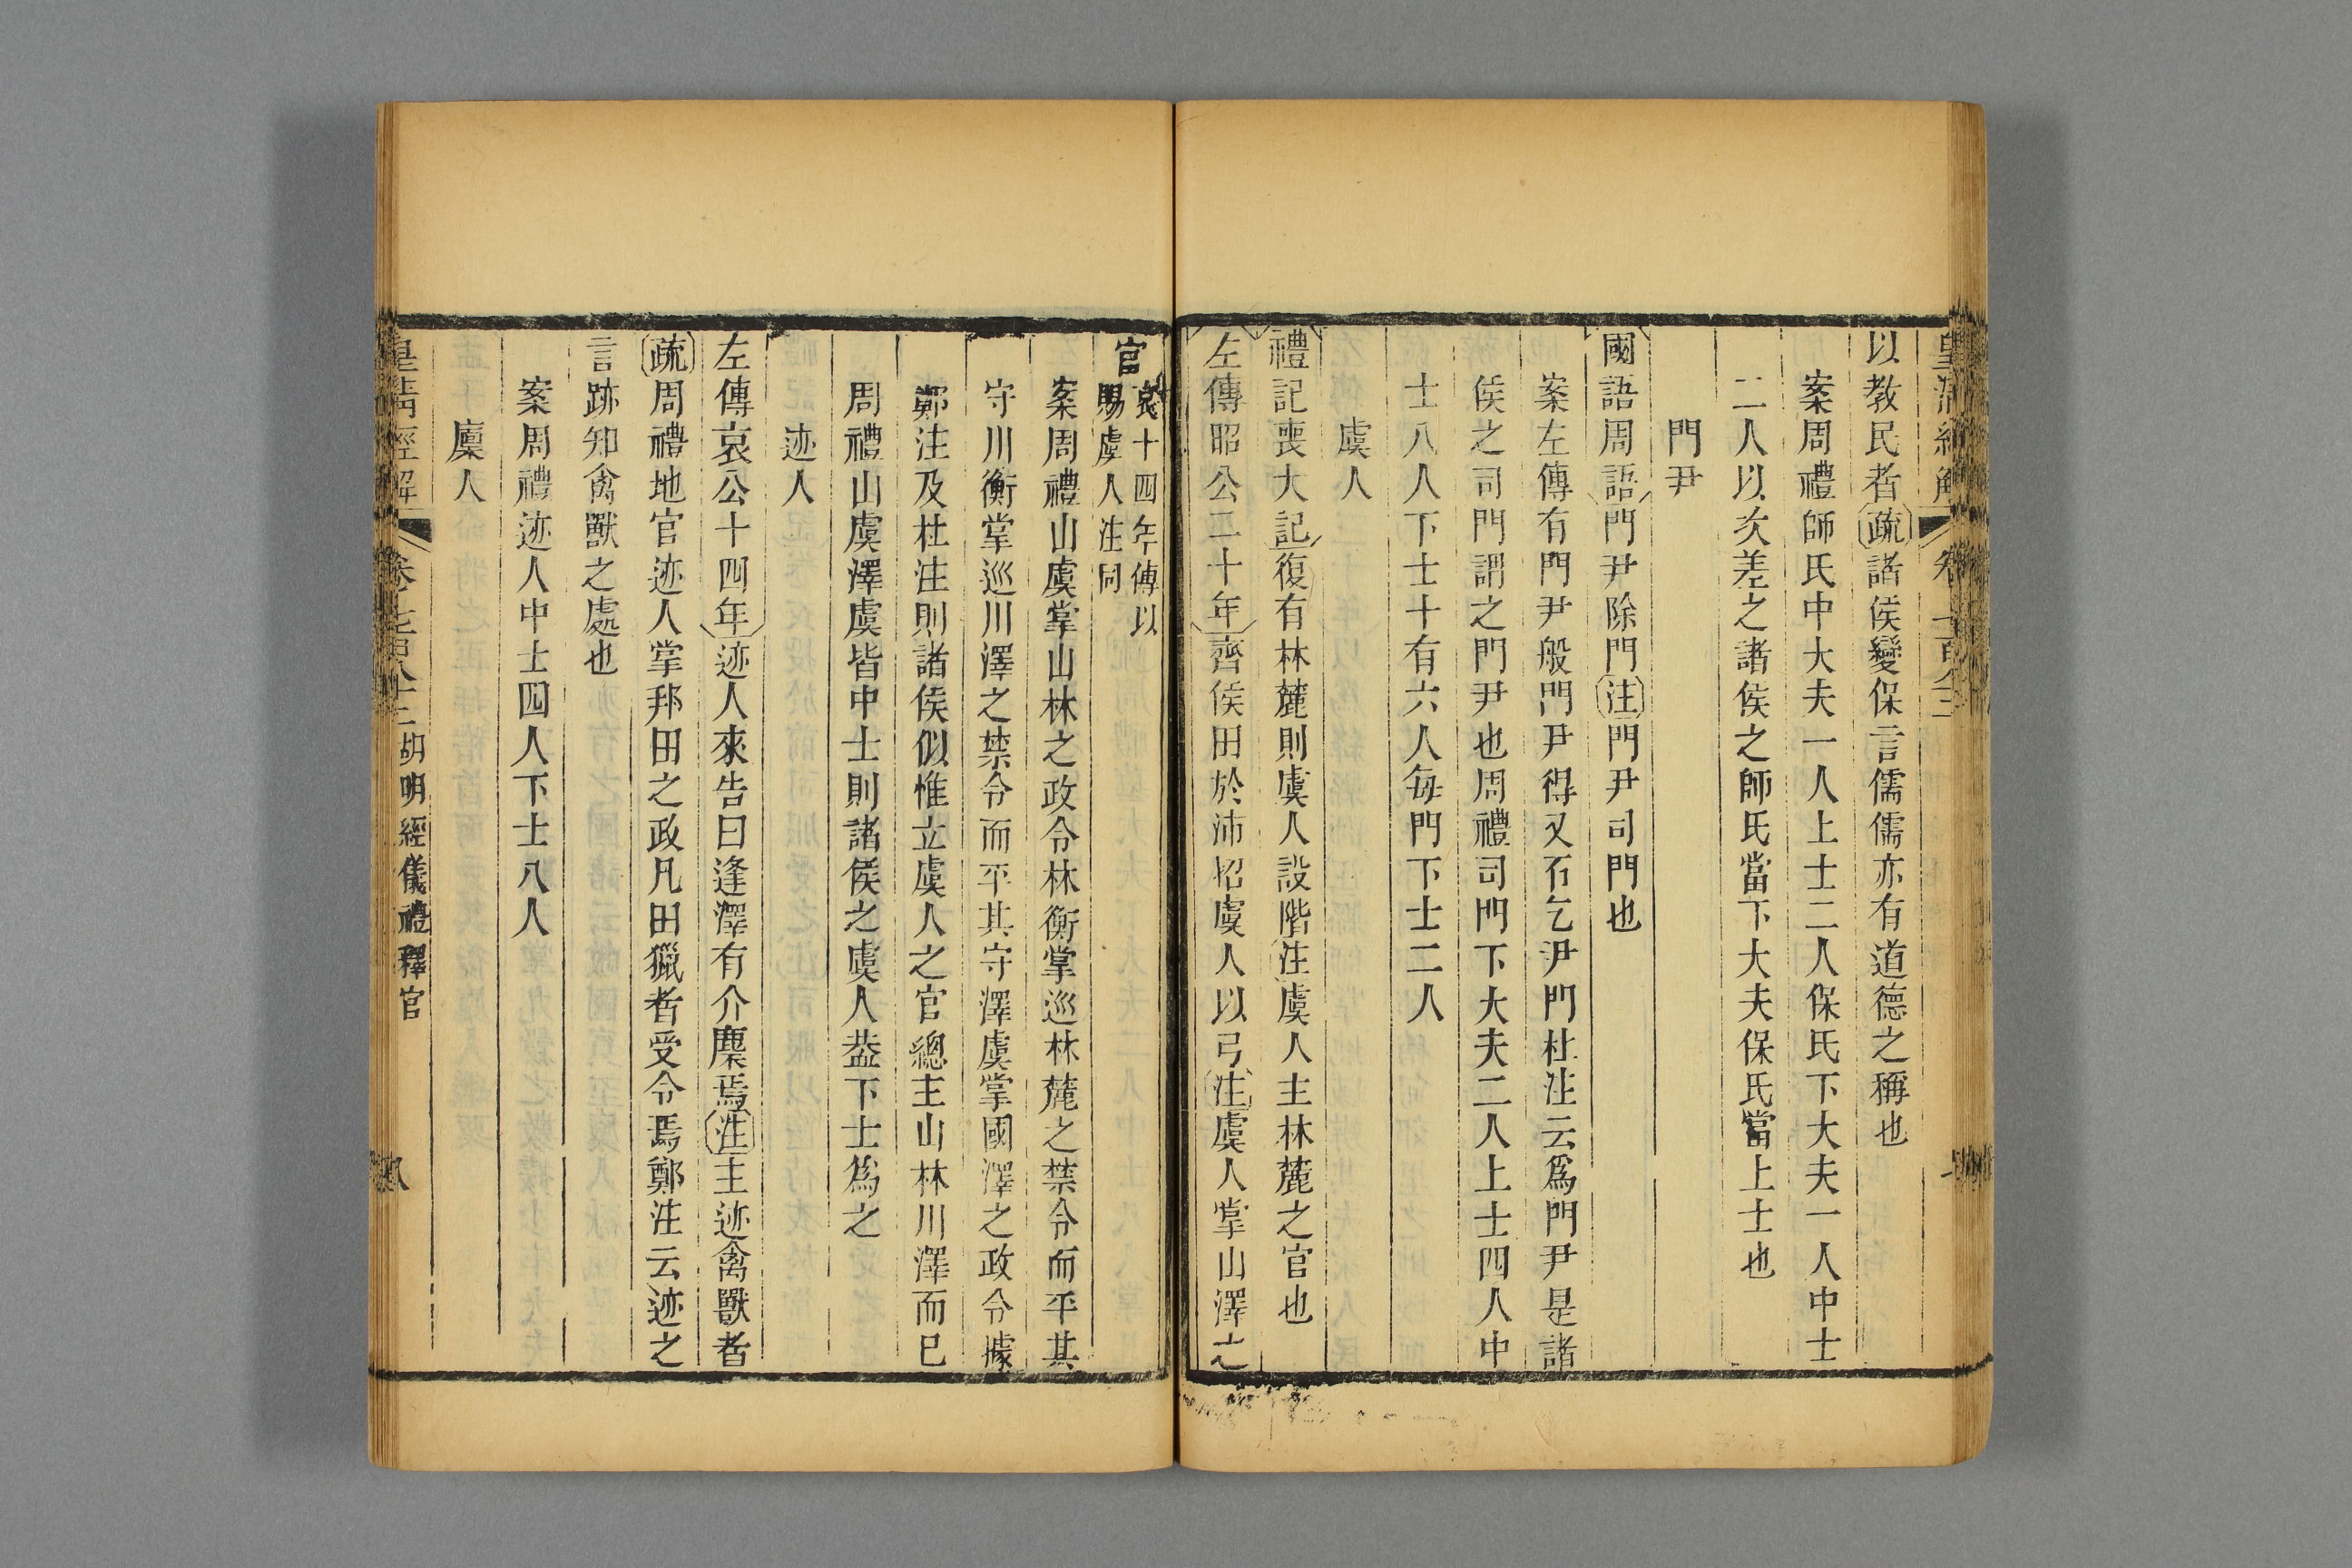 以教民者疏諸侯變保言儒儒亦有道德之稱也
案周禮師氏中大夫一人上士二人保氏下大夫一人中士
二人以次差之諸侯之師氏當下大夫保氏當上士也
門尹
國語周語門尹除門注門尹司門也
案左傳有門尹般門尹得又石乞尹門杜注云爲門尹是諸
侯之司門謂之門尹也周禮司門下大夫二人上士四人中
士八人下士十有六人每門下士二人
虞人
禮記喪大記復有林麓則虞人設階注虞人主林麓之官也
左傳昭公二十年齊侯田於沛招虞人以弓注虞人掌山澤之
官哀十四年傳以
賜虞人注同
案周禮山虞掌山林之政令林衡掌巡林麓之禁令而平其
守川衡掌巡川澤之禁令而平其守澤虞掌國澤之政令據
鄭注及杜注則諸侯似惟立虞人之官總主山林川澤而已
周禮山虞澤虞皆中士則諸侯之虞人葢下士爲之
迹人
左傳哀公十四年迹人來告曰逢澤有介麇焉注主迹禽獸者
疏周禮地官迹人掌邦田之政凡田獵者受令焉鄭注云迹之
言跡知禽獸之處也
案周禮迹人中士四人下士八人
廩人
皇清經解 卷七百八十二 胡明經儀禮釋官 八